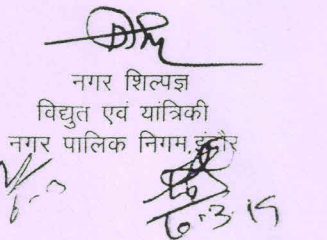 नगर शिल्पज्ञ
विद्युत एवं यांत्रिकी
नगर पालिक निगम, इन्दौर
6-3
6-3-15